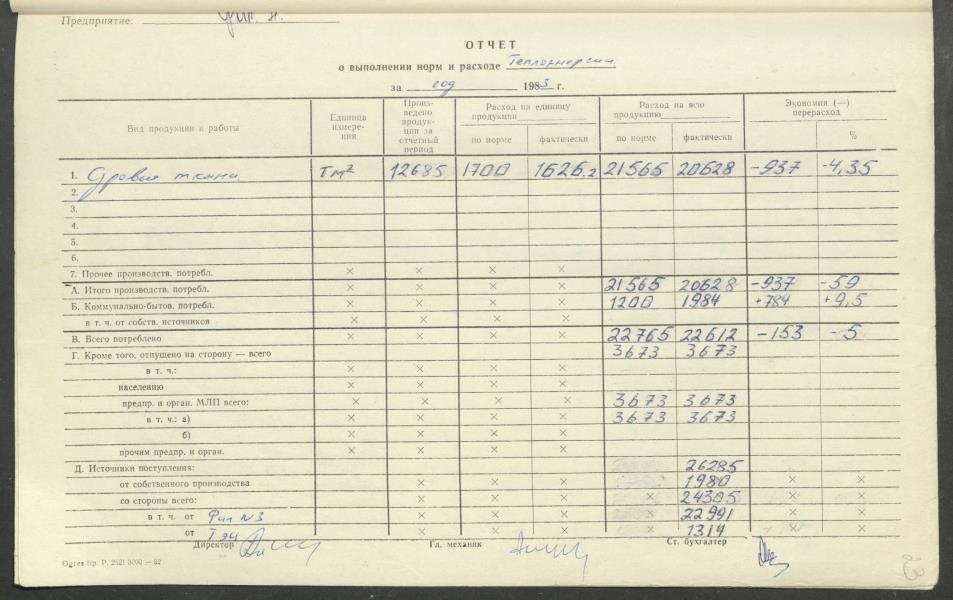 Предприятие: фил. №
ОТЧЕТ
о выполнении норм и расходе Теплоэнергии
за год 1983 г.
Вид продукции и работы | Единица измерения | Произведено продукции за отчетный период | Расход на единицу продукции | Расход на всю продукцию | Экономия (—) перерасход
по норме | фактически | по норме | фактически | %
1. Суровые ткани | Тм² | 12685 | 1700 | 1626.2 | 21565 | 20628 | -937 | -4,35
2.
3.
4.
5.
6.
7. Прочее производств. потребл. × × × ×
А. Итого производств. потребл. × × × × 21565 20628 -937 -59
Б. Коммунально-бытов. потребл. × × × × 1200 1984 +784 +9,5
в т. ч. от собств. источников × × × ×
В. Всего потреблено × × × × 22765 22612 -153 -5
Г. Кроме того, отпущено на сторону — всего 3673 3673
в т. ч.: × × × ×
населению × × × ×
предпр. и орган. МЛП всего: × × × × 3673 3673
в т. ч.: а) × × × × 3673 3673
б) × × × ×
прочим предпр. и орган. × × × ×
Д. Источники поступления: 26285
от собственного производства × × × 1980 × ×
со стороны всего: × × × × 24305 × ×
в т. ч. от Фил №3 × × × × 22991 × ×
от Тэц × × × × 1314 × ×
Директор Гл. механик Ст. бухгалтер
Оргтев Пр. Р. 2521 3000 — 82